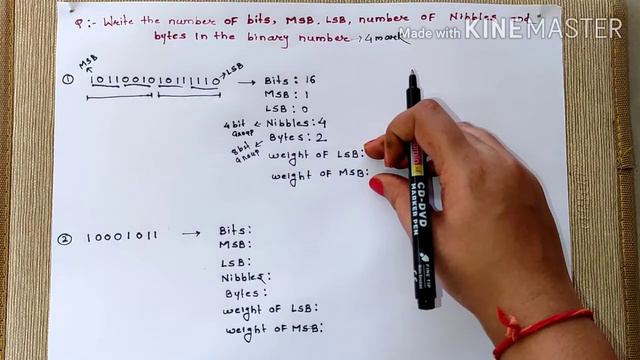 Q:- Write the number of bits, MSB. LSB, number of Nibbles and
bytes in the binary number. 4 mark
Made with KINEMASTER
MSB
LSB
① 1011001010111110 → Bits: 16
MSB: 1
LSB: 0
4 bit group ← Nibbles: 4
8 bit group ← Bytes: 2
weight of LSB:
weight of MSB:
② 10001011 → Bits:
MSB:
LSB:
Nibbles:
Bytes:
weight of LSB:
weight of MSB:
CD-DVD
MARKER PEN
FINE TIP